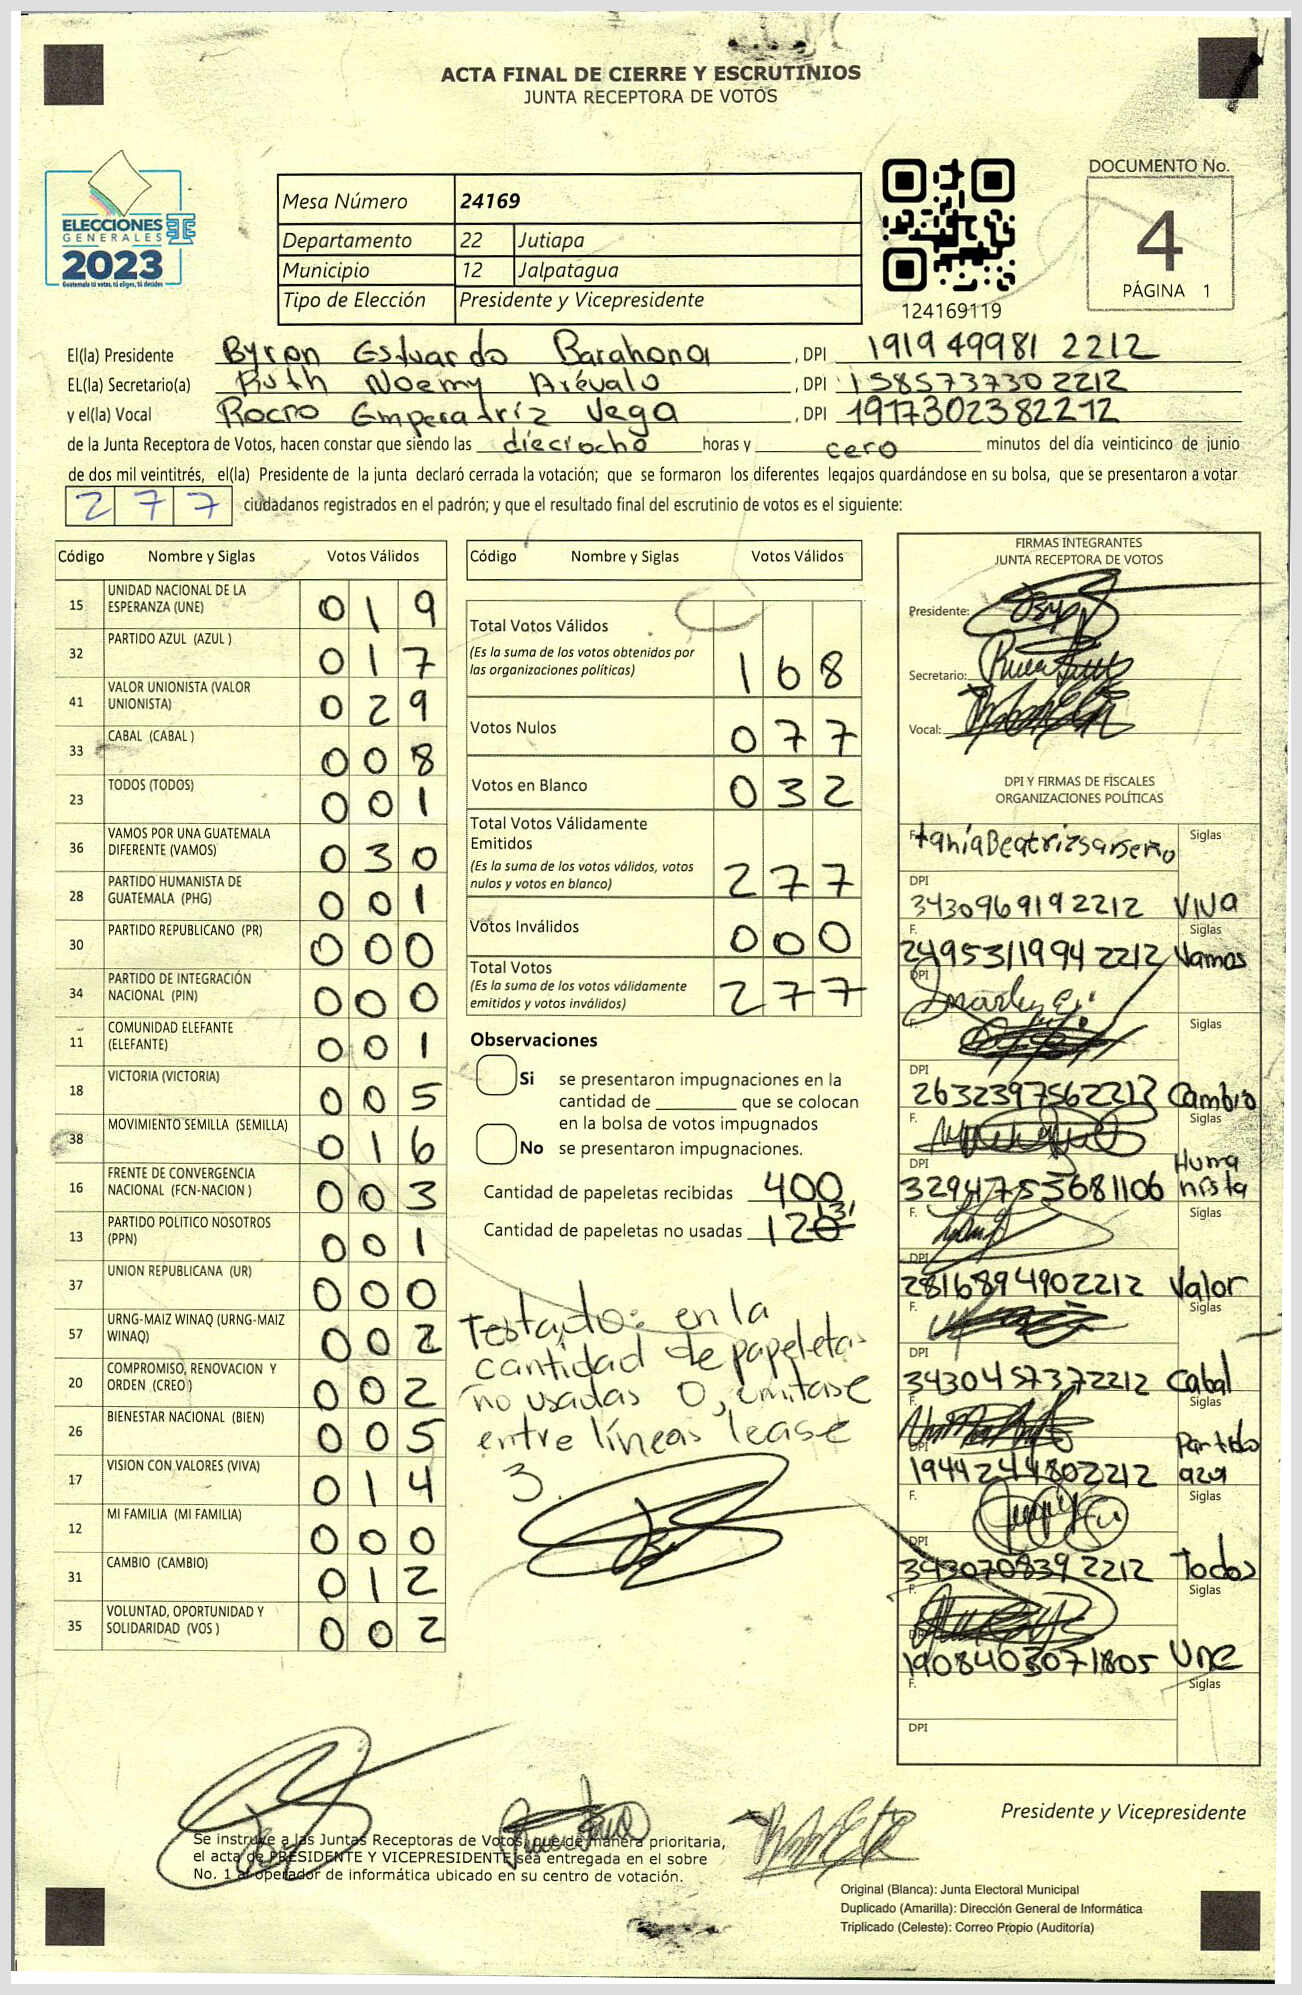 ACTA FINAL DE CIERRE Y ESCRUTINIOS
JUNTA RECEPTORA DE VOTOS
ELECCIONES
GENERALES
2023
Guatemala tú votas, tú eliges, tú decides
Mesa Número 24169
Departamento 22 Jutiapa
Municipio 12 Jalpatagua
Tipo de Elección Presidente y Vicepresidente
124169119
DOCUMENTO No.
4
PÁGINA 1
El(la) Presidente Byron Estuardo Barahona, DPI 1919 49981 2212
EL(la) Secretario(a) Ruth Noemy Arévalo, DPI 1585737302212
y el(la) Vocal Rocío Emperatríz Vega, DPI 1917302382212
de la Junta Receptora de Votos, hacen constar que siendo las dieciocho horas y cero minutos del día veinticinco de junio
de dos mil veintitrés, el(la) Presidente de la junta declaró cerrada la votación; que se formaron los diferentes legajos quardándose en su bolsa, que se presentaron a votar
277 ciudadanos registrados en el padrón; y que el resultado final del escrutinio de votos es el siguiente:
Código Nombre y Siglas Votos Válidos
15 UNIDAD NACIONAL DE LA ESPERANZA (UNE) 019
32 PARTIDO AZUL (AZUL ) 017
41 VALOR UNIONISTA (VALOR UNIONISTA) 029
33 CABAL (CABAL ) 008
23 TODOS (TODOS) 001
36 VAMOS POR UNA GUATEMALA DIFERENTE (VAMOS) 030
28 PARTIDO HUMANISTA DE GUATEMALA (PHG) 001
30 PARTIDO REPUBLICANO (PR) 000
34 PARTIDO DE INTEGRACIÓN NACIONAL (PIN) 000
11 COMUNIDAD ELEFANTE (ELEFANTE) 001
18 VICTORIA (VICTORIA) 005
38 MOVIMIENTO SEMILLA (SEMILLA) 016
16 FRENTE DE CONVERGENCIA NACIONAL (FCN-NACION ) 003
13 PARTIDO POLITICO NOSOTROS (PPN) 001
37 UNION REPUBLICANA (UR) 000
57 URNG-MAIZ WINAQ (URNG-MAIZ WINAQ) 002
20 COMPROMISO, RENOVACION Y ORDEN (CREO ) 002
26 BIENESTAR NACIONAL (BIEN) 005
17 VISION CON VALORES (VIVA) 014
12 MI FAMILIA (MI FAMILIA) 000
31 CAMBIO (CAMBIO) 012
35 VOLUNTAD, OPORTUNIDAD Y SOLIDARIDAD (VOS ) 002
Código Nombre y Siglas Votos Válidos
Total Votos Válidos
(Es la suma de los votos obtenidos por
las organizaciones políticas) 168
Votos Nulos 077
Votos en Blanco 032
Total Votos Válidamente
Emitidos
(Es la suma de los votos válidos, votos
nulos y votos en blanco) 277
Votos Inválidos 000
Total Votos
(Es la suma de los votos válidamente
emitidos y votos inválidos) 277
Observaciones
Si se presentaron impugnaciones en la
cantidad de ________ que se colocan
en la bolsa de votos impugnados
No se presentaron impugnaciones.
Cantidad de papeletas recibidas 400
Cantidad de papeletas no usadas 120 3
Testado: en la
cantidad de papeletas
no usadas 0, emitase
entre líneas lease
3.
FIRMAS INTEGRANTES
JUNTA RECEPTORA DE VOTOS
Presidente:
Secretario:
Vocal:
DPI Y FIRMAS DE FISCALES
ORGANIZACIONES POLÍTICAS
F. Siglas
DPI 3430969192212 VIVA
F. Siglas
2495311994 2212 Vamos
DPI
F. Siglas
DPI 2632397562212 Cambio
F. Siglas
DPI 3294755681106 Huma nista
F. Siglas
DPI 2816894902212 Valor
F. Siglas
DPI 3430457372212 Cabal
F. Siglas
DPI 1944244802212 Partido azul
F. Siglas
DPI 3430708392212 Todos
F. Siglas
DPI 1908403071805 Une
F. Siglas
DPI
Presidente y Vicepresidente
Se instruye a las Juntas Receptoras de Votos, que de manera prioritaria,
el acta de PRESIDENTE Y VICEPRESIDENTE sea entregada en el sobre
No. 1 al operador de informática ubicado en su centro de votación.
Original (Blanca): Junta Electoral Municipal
Duplicado (Amarilla): Dirección General de Informática
Triplicado (Celeste): Correo Propio (Auditoría)